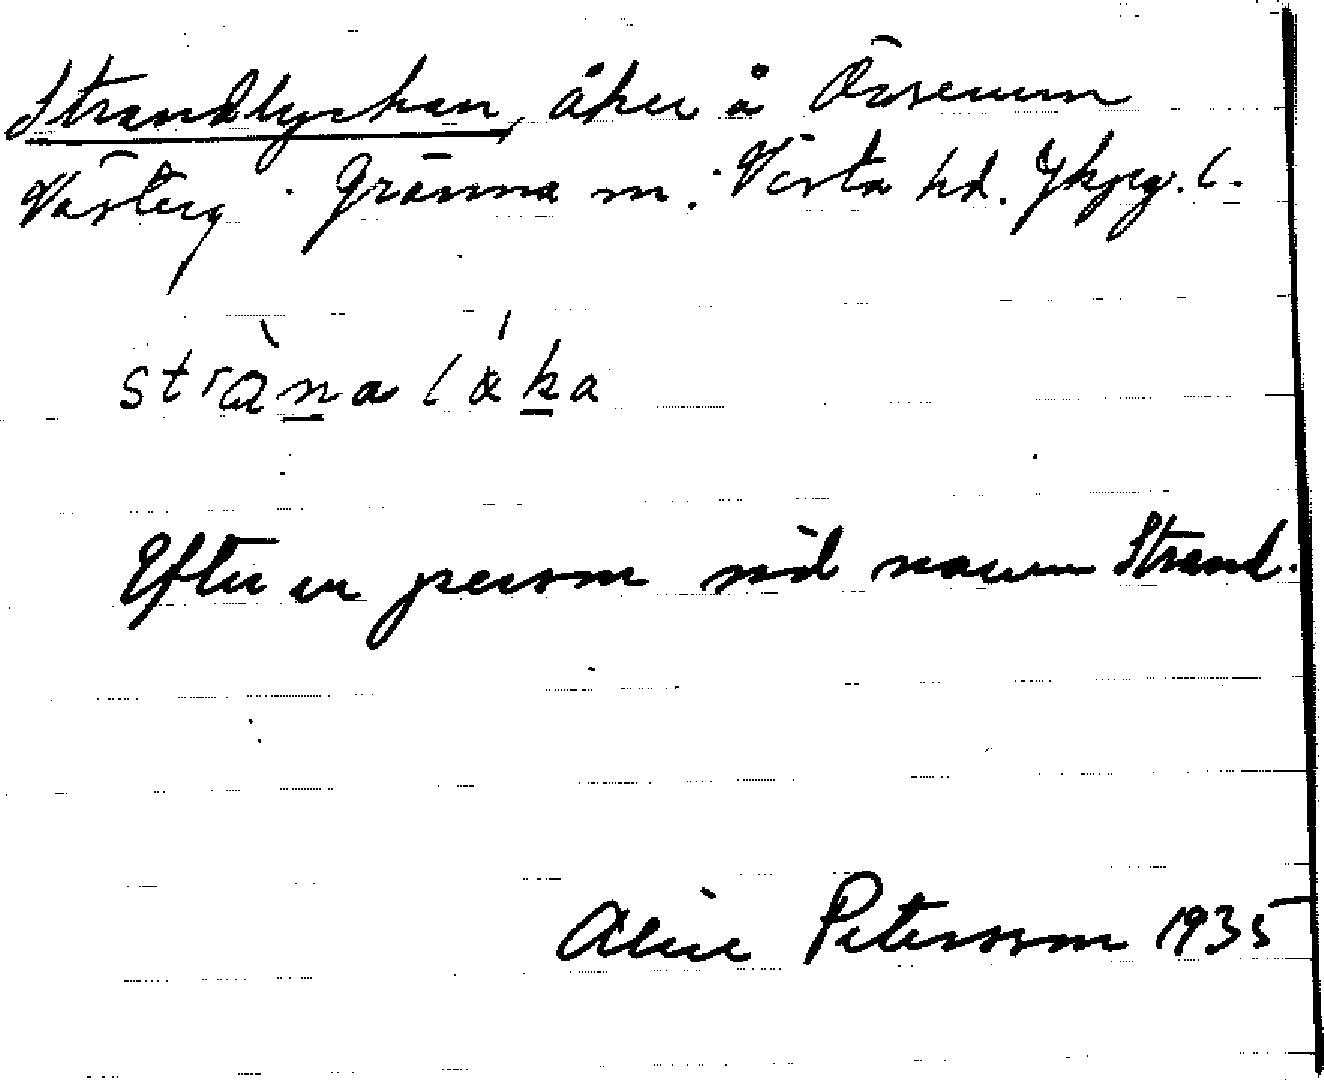 Strandlyckan, åker å Övserum
Västerg. Gränna m. Vista hd. Jkpg. l.
strànaláka
Efter en person vid namn Strand.
Alice Petersson 1935